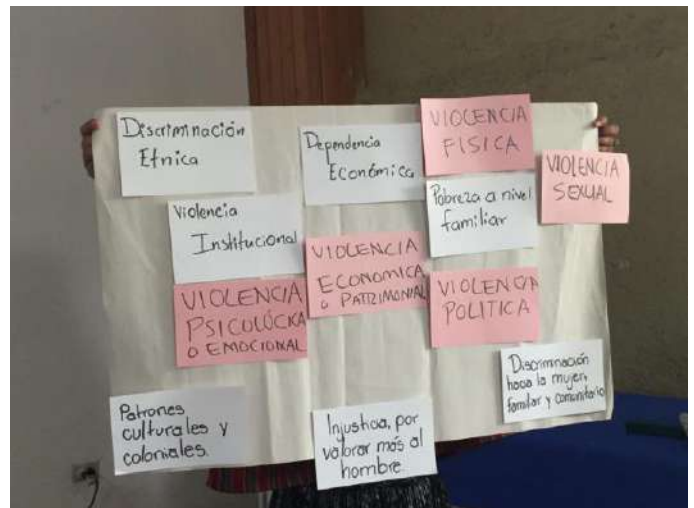 Discriminación
Etnica
Dependencia
Económica
VIOLENCIA
FISICA
VIOLENCIA
SEXUAL
Violencia
Institucional
Pobreza a nivel
familiar
VIOLENCIA
ECONOMICA
o PATRIMONIAL
VIOLENCIA
PSICOLÓCKA
O EMOCIONAL
VIOLENCIA
POLITICA
Discriminación
hacia la mujer,
familiar y comunitario
Patrones
culturales y
coloniales.
Injusticia, por
valorar más al
hombre.